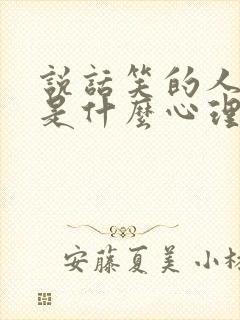 説話笑的人
是什麼心理
安藤夏美 小林